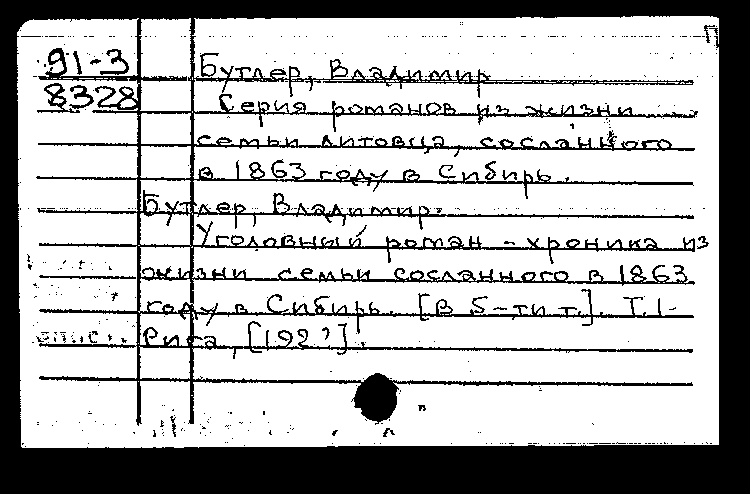 П
91-3 Бутлер, Владимир
8328 Серия романов из жизни
семьи литовца, сосланного
в 1863 году в Сибирь.
Бутлер, Владимир.
Уголовный роман - хроника из
жизни семьи сосланного в 1863
году в Сибирь. [В 5-ти т.]. Т.1-
Рига, [192?].